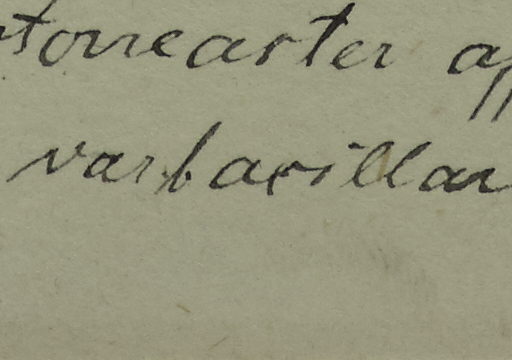 tonearter ap
var bacillar